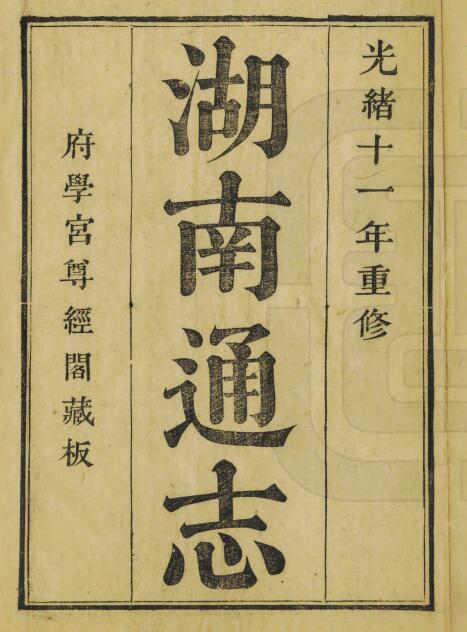 光緒十一年重修
湖南通志
府學宮尊經閣藏板